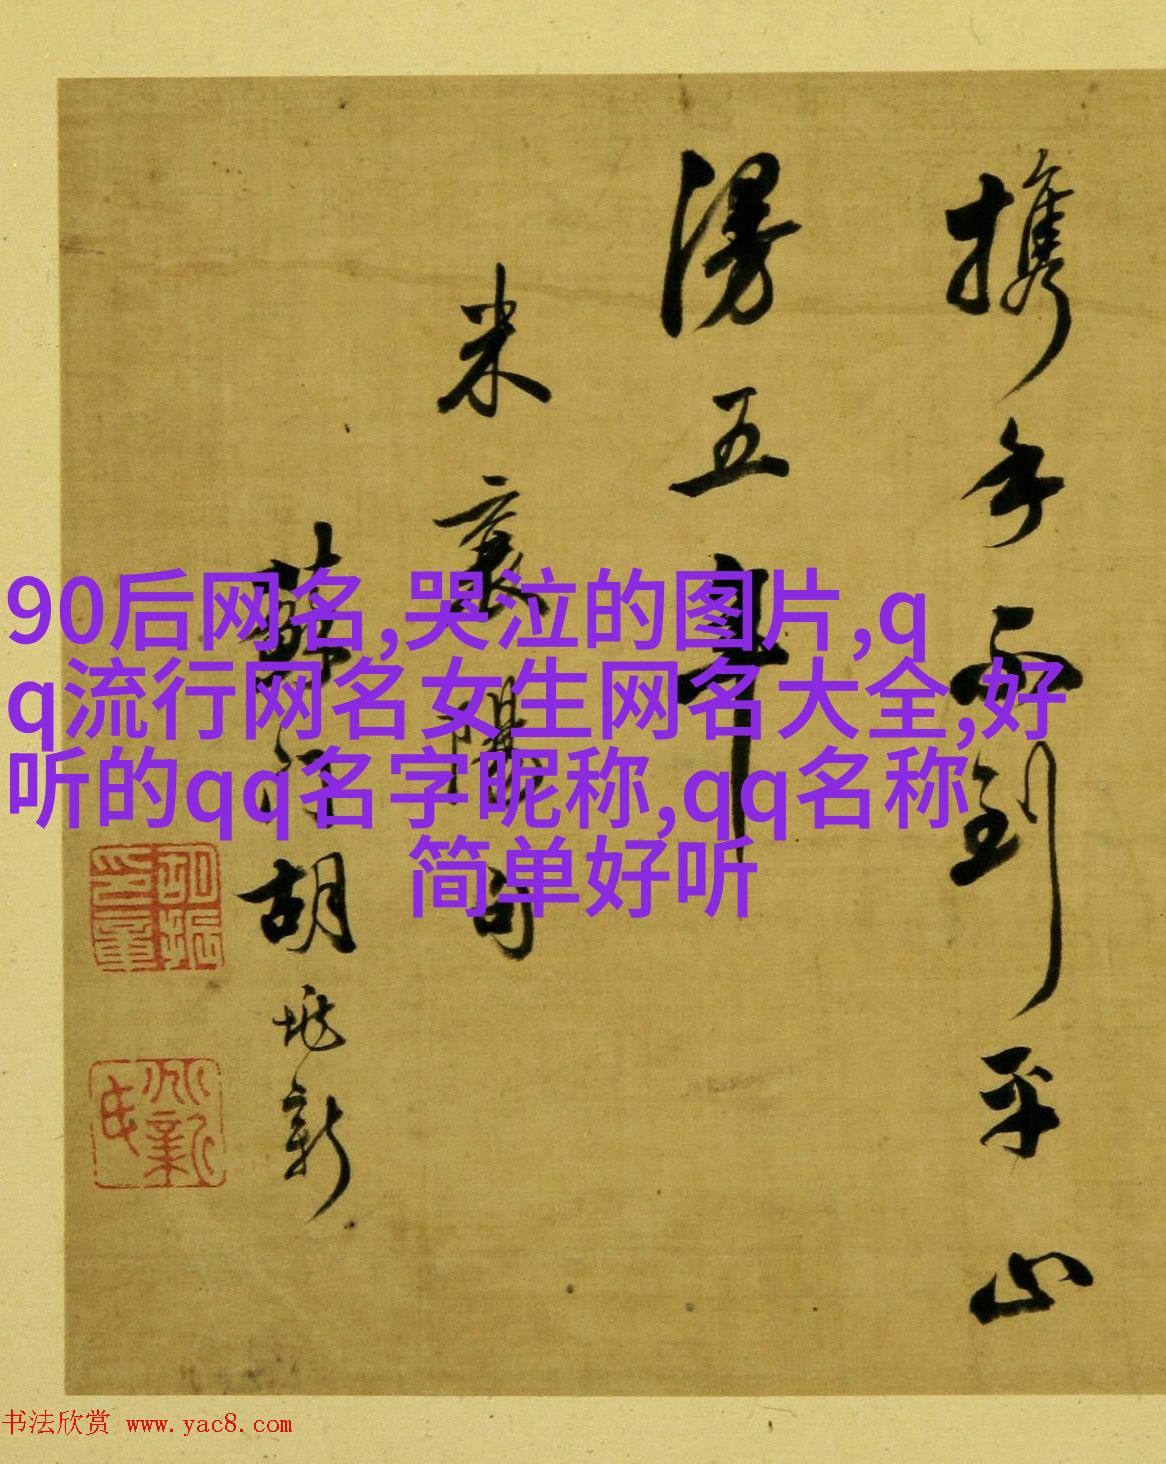 攜手不到平山
漫五年
米襄陽句
胡垗新
90后网名,哭泣的图片,q
q流行网名女生网名大全,好
听的qq名字昵称,qq名称
简单好听
书法欣赏 www.yac8.com